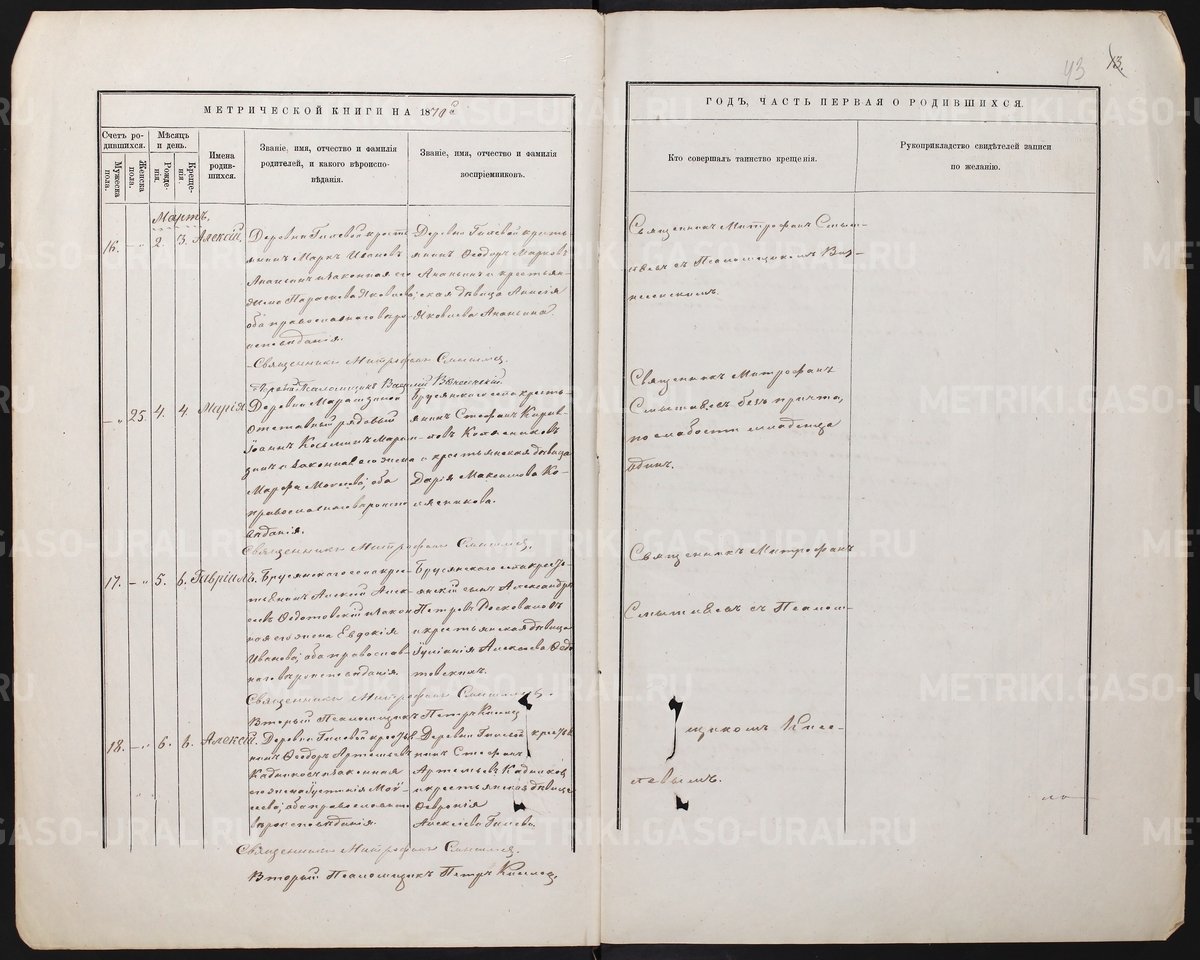 43 13.
МЕТРИЧЕСКОЙ КНИГИ НА 1870й
ГОДЪ, ЧАСТЬ ПЕРВАЯ О РОДИВШИХСЯ.
Счетъ родившихся.
Мужеска пола.
Женска пола.
Мѣсяцъ и день.
Рожденія.
Крещенія.
Имена родившихся.
Званіе, имя, отчество и фамилія
родителей, и какого вѣроиспо-
вѣданія.
Званіе, имя, отчество и фамилія
воспріемниковъ.
Кто совершалъ таинство крещенія.
Рукоприкладство свидѣтелей записи
по желанію.
Мартъ.
16. - " 2. 3. Алексій.
Деревни Гилевой кресть-
янинъ Маркъ Ивановъ
Ананьинъ и законная его
жена Параскева Яковлева;
оба православнаго вѣро-
исповѣданія.
Деревни Гилевой кресть-
янинъ Ѳеодоръ Марковъ
Ананьинъ и крестьян-
ская дѣвица Анисія
Яковлева Ананьина.
Священникъ Митрофанъ
съ Псаломщикомъ Воз-
несенскимъ.
Священникъ Митрофанъ
Первый Псаломщикъ Василій
- " 25. 4. 4. Марія.
Деревни
Отставный рядовый
Іоаннъ Козьминъ
и законная его жена
Марфа оба
православнаго вѣроиспо-
вѣданія.
Брусянскаго села кресть-
янинъ Стефанъ
Кожевниковъ
и крестьянская дѣвица
Дарія Максимова Ко-
жевникова.
Священникъ Митрофанъ
безъ причта,
по слабости младенца
одинъ.
Священникъ Митрофанъ
17. - " 5. 6. Гавріилъ.
Брусянскаго села кре-
стьянинъ Алексій Алек-
сѣевъ Ѳедотовскій и закон-
ная его жена Евдокія
Иванова; оба православ-
наго вѣроисповѣданія.
Брусянскаго села крестья-
янскій сынъ Александръ
Петровъ
и крестьянская дѣвица
Іуліанія Алексѣева Ѳедо-
товскихъ.
Священникъ Митрофанъ
съ Псалом-
щикомъ Кисе-
левымъ.
Священникъ Митрофанъ
Вторый Псаломщикъ Петръ Киселев
18. - " 6. 6. Алексій.
Деревни Гилевой крестья-
нинъ Ѳеодоръ Артемьевъ
Кадниковъ и законная
его жена Устинія Мои-
сеева; оба православнаго
вѣроисповѣданія.
Деревни Гилевой крестья-
нинъ Стефанъ
Артемьевъ Кадниковъ
и крестьянская дѣвица
Ѳевронія
Алексѣева Гилева.
Священникъ Митрофанъ
Вторый Псаломщикъ Петръ Киселев